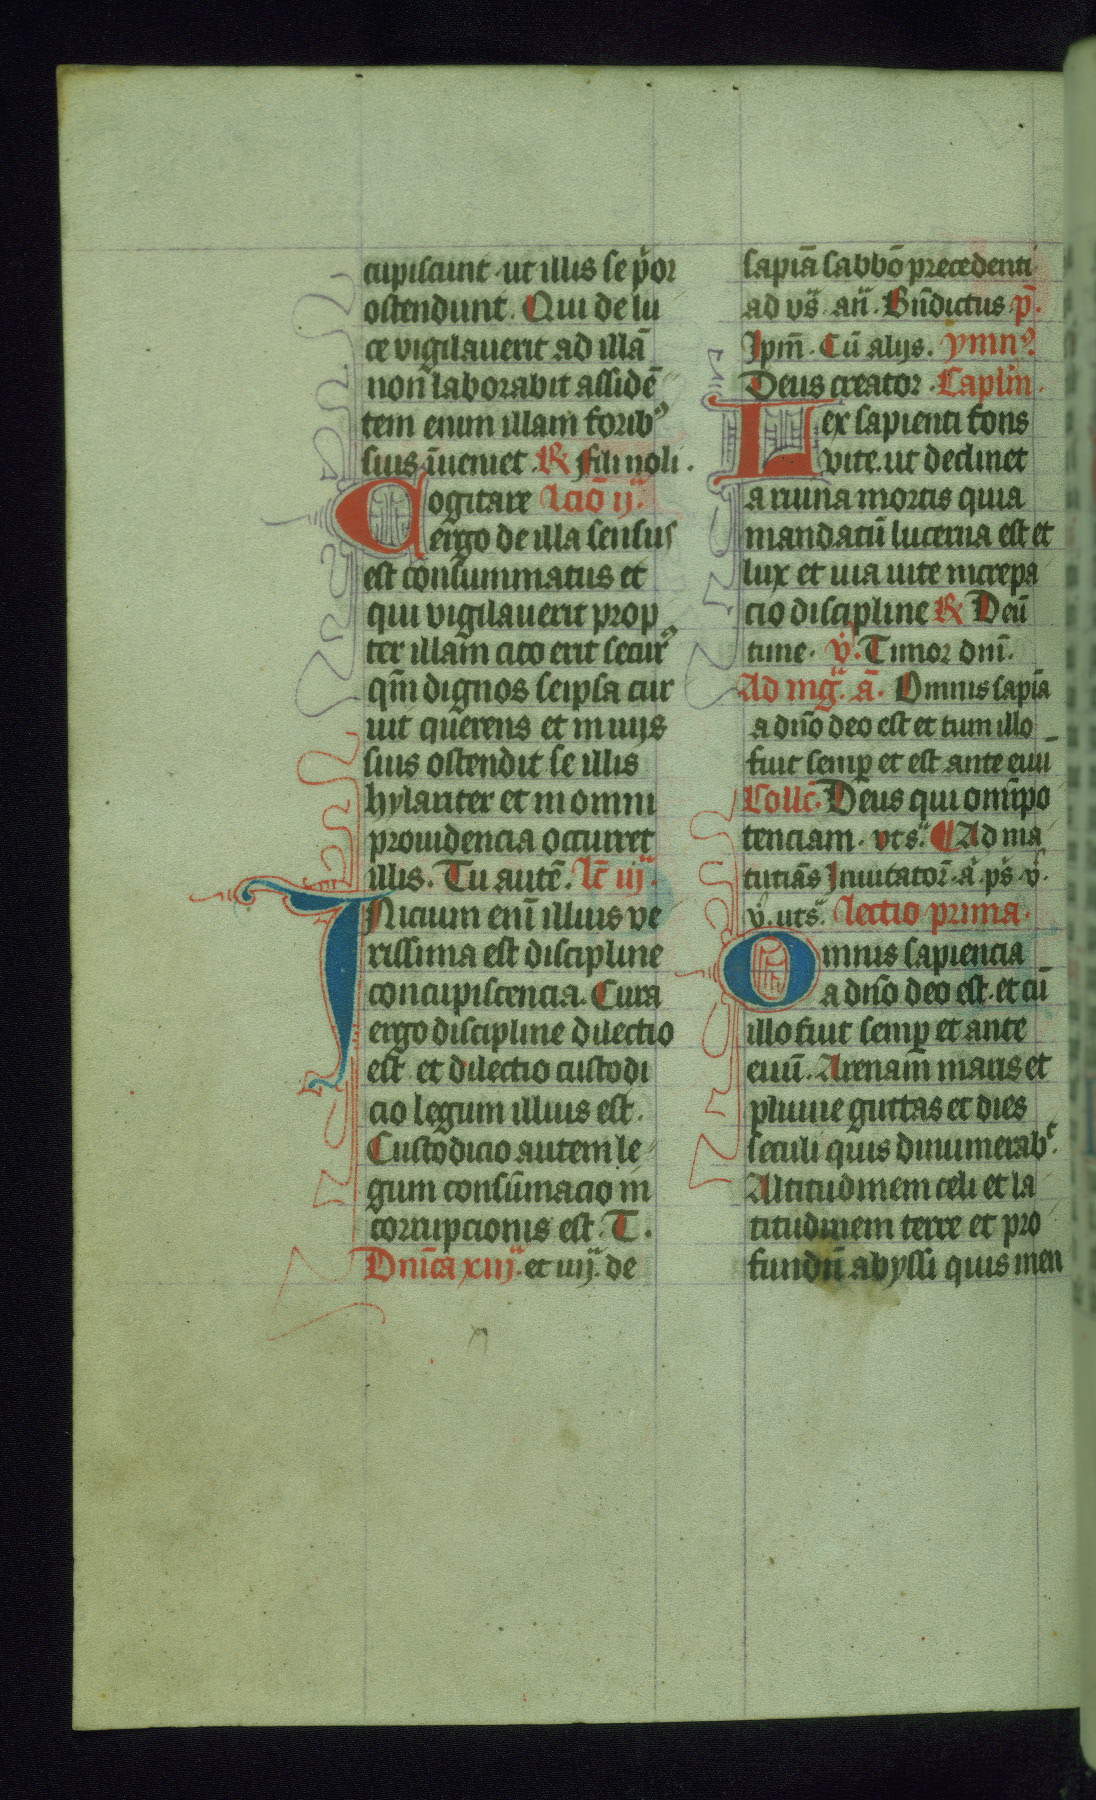 cupiscunt ut illis se p̾or
ostendunt. Qui de lu
ce vigilauerit ad illā
non laborabit assidē
tem enim illam forib⁹
suis īueniet. R̷ fili noli.
Cogitare lc̄io ij.
ergo de illa sensus
est consummatus et
qui vigilauerit prop
ter illam cito erit secur⁹
qm̄ dignos seipsa cir
uit querens et in uijs
suis ostendit se illis
hylariter et in omni
prouidencia occurret
illis. Tu autē. lc̄ iij.
INicium enī illius ve
rissima est discipline
concupiscencia. Cura
ergo discipline dilectio
est et dilectio custodi
cio legum illius est.
Custodicio autem le
gum consūmacio in
corrupcionis est. T.
Dnīca xiij. et iiij. de
sapīa sabbō precedenti
ad vs̄. an̄. Bn̄dictus p̄.
Ipm̄. Cū alijs. ymn⁹.
Deus creator. Caplm̄.
Lex sapienti fons
vite. ut declinet
a ruina mortis quia
mandatū lucerna est et
lux et uia uite increpa
cio discipline R̷ Deū
time. v̾. Timor dnī.
Ad mḡ. ā. Omnis sapīa
a dnō deo est et cum illo
fuit semp̄ et est ante euū
Collc̄. Deus qui omīpo
tenciam. vts̄. Ad ma
tutiās Inuitatōr. ā. ps̄. v̾.
v̾. uts̄. lectio prima.
Omnis sapiencia
a dn̄o deo est. et cū
illo fuit semp̄ et ante
euū. Arenam maris et
pluuie guttas et dies
seculi quis dinumerabᵗ.
Altitudinem celi et la
titudinem terre et pro
fundū abyssi quis men